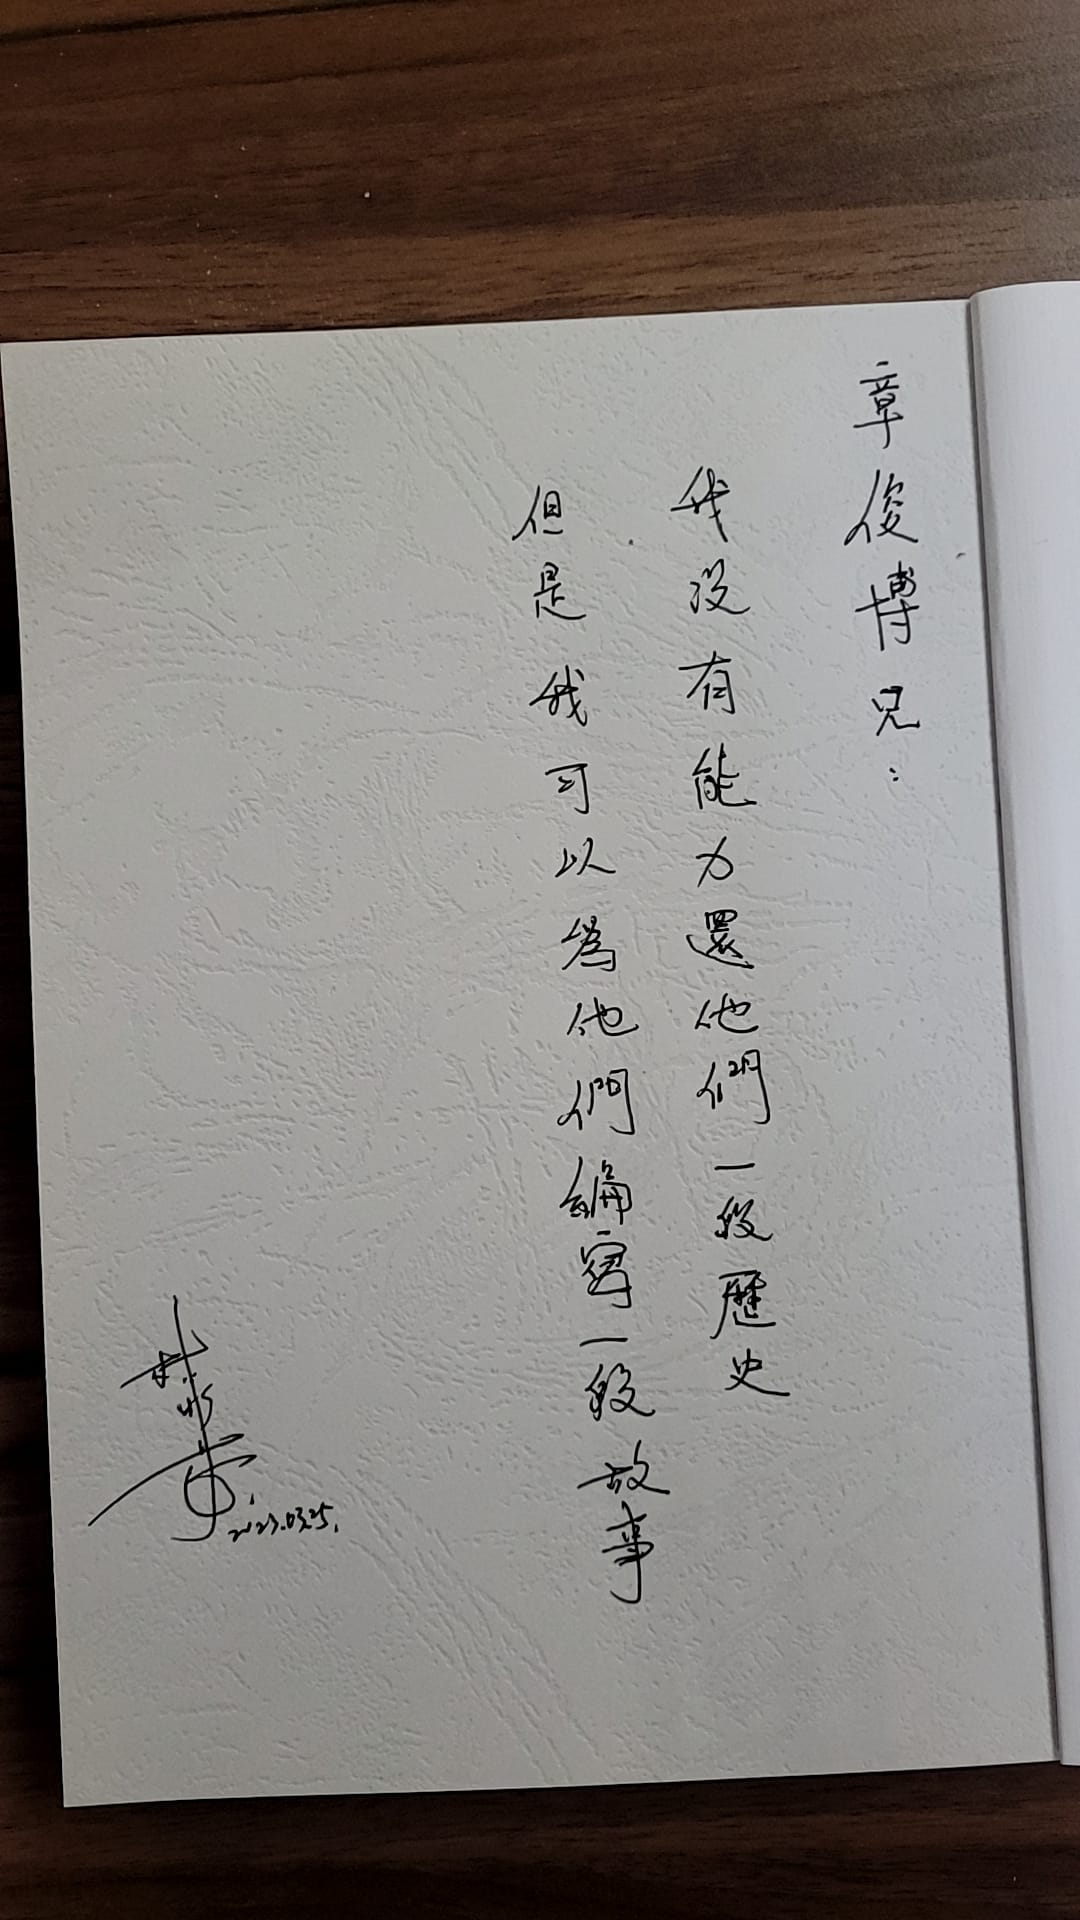 章俊博兄：
我沒有能力還他們一段歷史
但是我可以為他們編寫一段故事
2023.03.25.